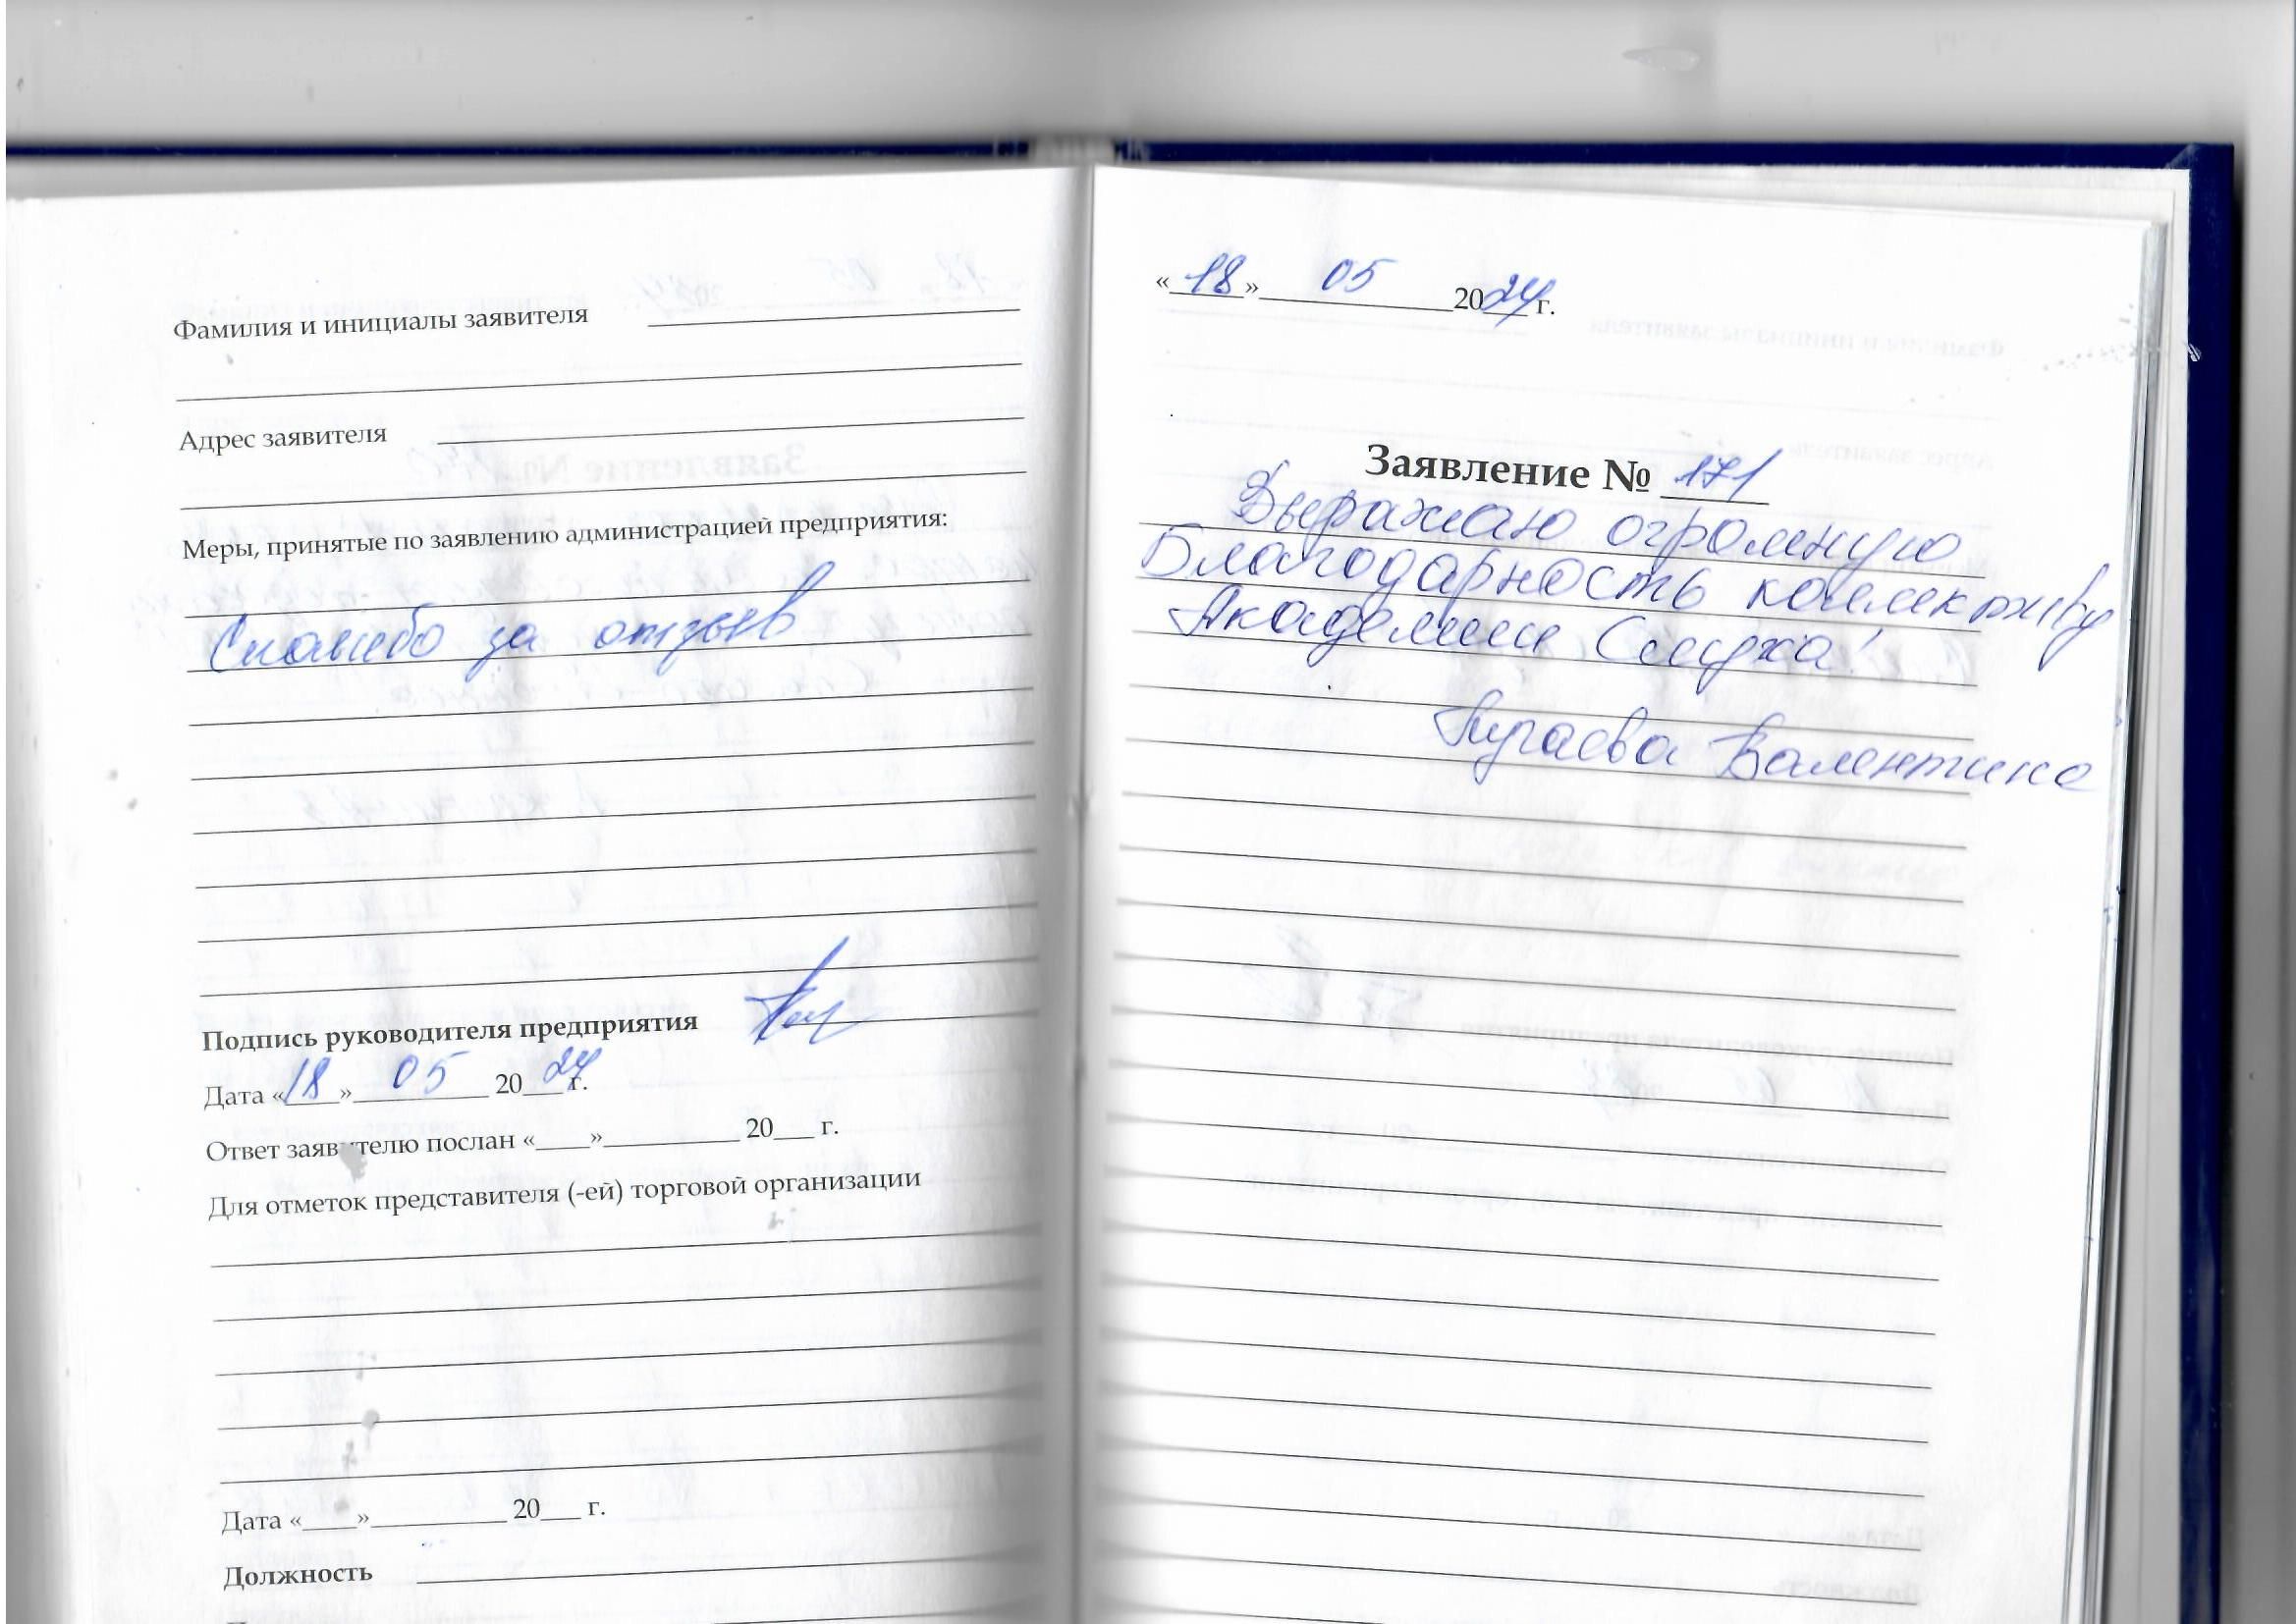 Фамилия и инициалы заявителя
Адрес заявителя
Меры, принятые по заявлению администрацией предприятия:
Спасибо за отзыв
Подпись руководителя предприятия
Дата «18» 05 2024 г.
Ответ заявителю послан «____»__________ 20___ г.
Для отметок представителя (-ей) торговой организации
Дата «____»__________ 20___ г.
Должность
«18» 05 2024 г.
Заявление № 171
Выражаю огромную
Благодарность коллективу
Академии Слуха!
Валентина